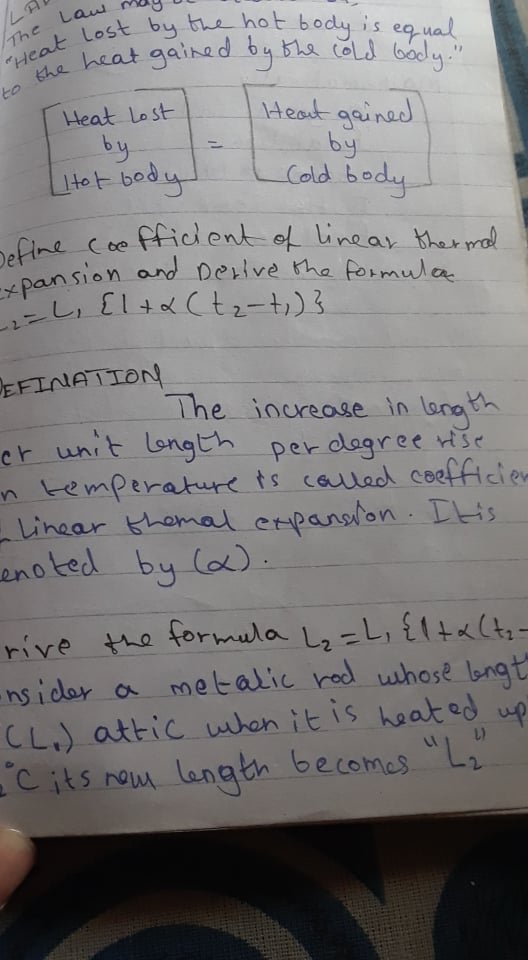 LA
The Law may b
"Heat Lost by the hot body is equal
to the heat gained by the cold body."
Heat Lost
by
Hot body
=
Heat gained
by
Cold body
Define Coefficient of linear thermal
expansion and Derive the formula
L2 = L1 {1+α(t2-t1)}
EFINATION
The increase in length
er unit length per degree rise
n temperature is called coefficien
linear themal expansion. It is
enoted by (α).
rive the formula L2 = L1 {1+α(t2-
nsider a metalic rod whose lengt
(L1) at t1°C when it is heated up
°C its new length becomes "L2"